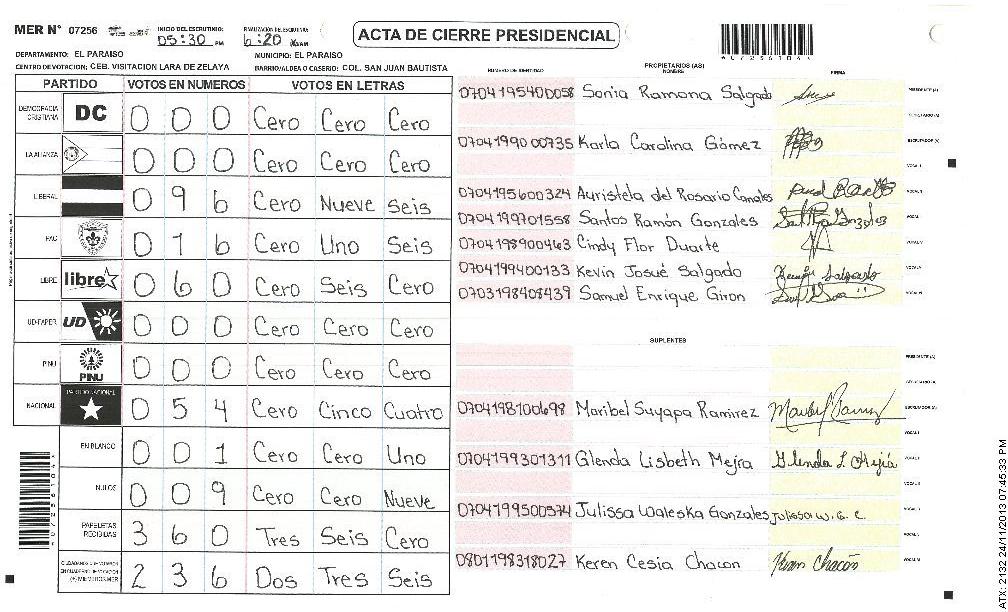 MER N° 07256
INICIO DEL ESCRUTINIO: 05:30 PM
FINALIZACIÓN DEL ESCRUTINIO: 6:20
ACTA DE CIERRE PRESIDENCIAL
DEPARTAMENTO: EL PARAISO
MUNICIPIO: EL PARAISO
CENTRO DE VOTACION: CEB. VISITACION LARA DE ZELAYA
BARRIO/ALDEA O CASERIO: COL. SAN JUAN BAUTISTA
PARTIDO VOTOS EN NUMEROS VOTOS EN LETRAS
DEMOCRACIA CRISTIANA DC 0 0 0 Cero Cero Cero
LA ALIANZA 0 0 0 Cero Cero Cero
LIBERAL 0 9 6 Cero Nueve Seis
PAC 0 1 6 Cero Uno Seis
LIBRE libre 0 6 0 Cero Seis Cero
UD-FAPER UD 0 0 0 Cero Cero Cero
PINU PINU 0 0 0 Cero Cero Cero
NACIONAL PARTIDO NACIONAL 0 5 4 Cero Cinco Cuatro
EN BLANCO 0 0 1 Cero Cero Uno
NULOS 0 0 9 Cero Cero Nueve
PAPELETAS RECIBIDAS 3 6 0 Tres Seis Cero
2 3 6 Dos Tres Seis
NUMERO DE IDENTIDAD PROPIETARIOS (AS) NOMBRE FIRMA
0704195400058 Sonia Ramona Salgado PRESIDENTE (A)
SECRETARIO (A)
0704199000735 Karla Carolina Gómez ESCRUTADOR (A)
VOCAL I
0704195600324 Auristela del Rosario Canales
0704199701558 Santos Ramón Gonzales
0704198900463 Cindy Flor Duarte
0704199400133 Kevin Josué Salgado
0703198408439 Samuel Enrique Giron
SUPLENTES
PRESIDENTE (A)
SECRETARIO (A)
0704198100698 Maribel Suyapa Ramirez ESCRUTADOR (A)
VOCAL I
0704199301311 Glenda Lisbeth Mejia Glenda L Mejía
0704199500574 Julissa Waleska Gonzales Julissa W. G. C.
0801198318027 Keren Cesia Chacon Keren Chacón
ATX: 2132 24/11/2013 07:45:33 PM